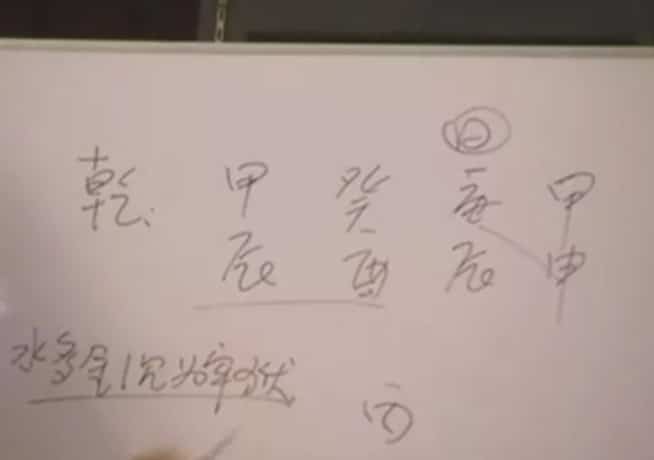 日
乾: 甲 癸 庚 甲
辰 酉 辰 申
水多金沉为牢狱